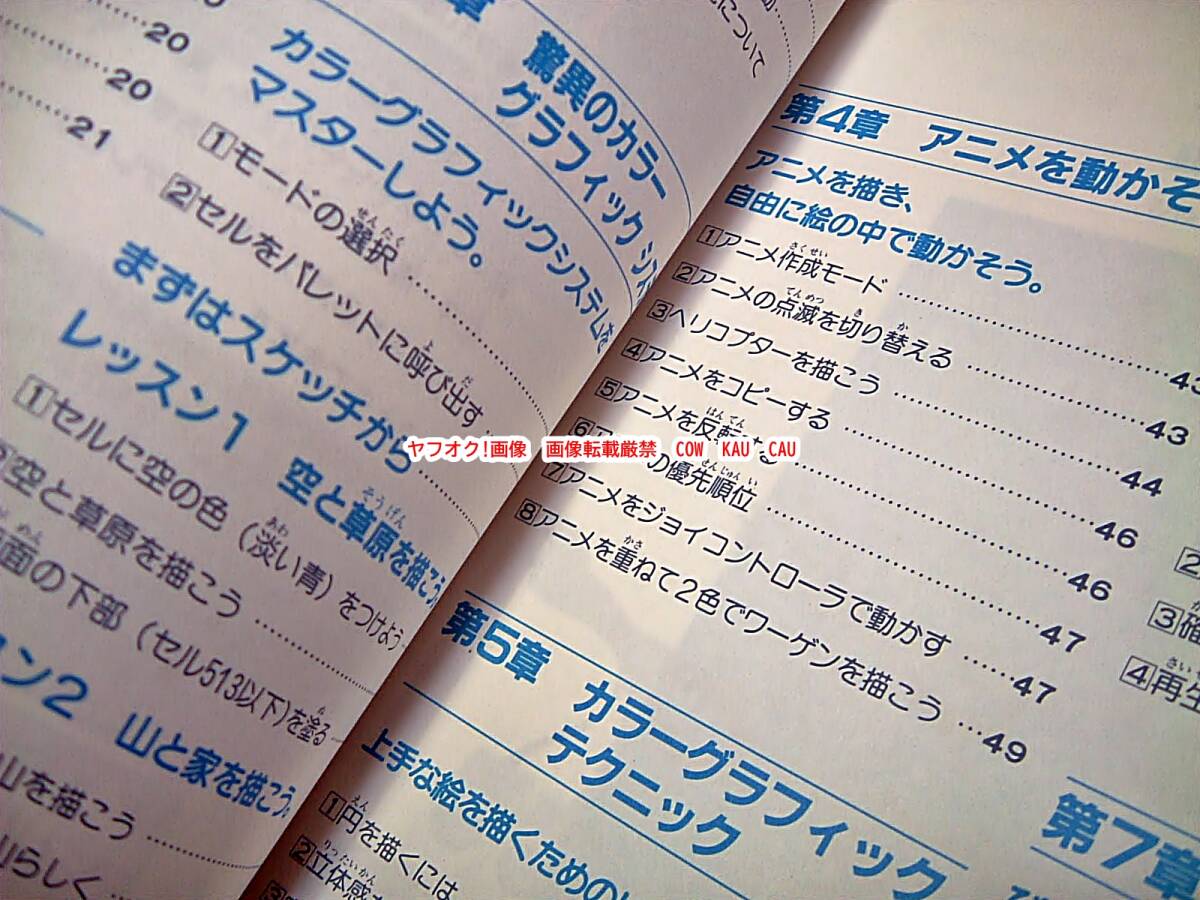 について
20
20
21
章 驚異のカラー
グラフィック シス
カラーグラフィックシステムを
マスターしよう。
1 モードの選択
せんたく
2 セルをパレットに呼び出す
よ だ
まずはスケッチから
レッスン1 空と草原を描こう
そうげん
1 セルに空の色(淡い青)をつけよう
あわ
空と草原を描こう
面の下部(セル513以下)を塗る
めん ぬ
ン2 山と家を描こう。
山を描こう
山らしく
第4章 アニメを動かそ
アニメを描き、
自由に絵の中で動かそう。
1 アニメ作成モード
さくせい
43
2 アニメの点滅を切り替える
てんめつ き か
43
3 ヘリコプターを描こう
44
4 アニメをコピーする
46
5 アニメを反転する
はんてん
46
6 の優先順位
せんじゅんい
47
7 アニメをジョイコントローラで動かす
47
8 アニメを重ねて2色でワーゲンを描こう
かさ
49
第5章 カラーグラフィック
テクニック
上手な絵を描くための
1 円を描くには
えん
2 立体感
りったいかん
2
3 確
4 再生
さい
第7章
ヤフオク!画像 画像転載厳禁 COW KAU CAU